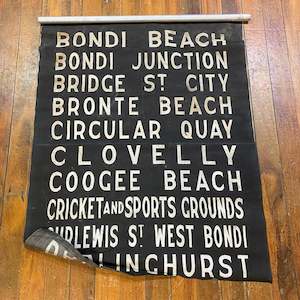 BONDI BEACH
BONDI JUNCTION
BRIDGE ST CITY
BRONTE BEACH
CIRCULAR QUAY
CLOVELLY
COOGEE BEACH
CRICKET AND SPORTS GROUNDS
CURLEWIS ST WEST BONDI
DARLINGHURST